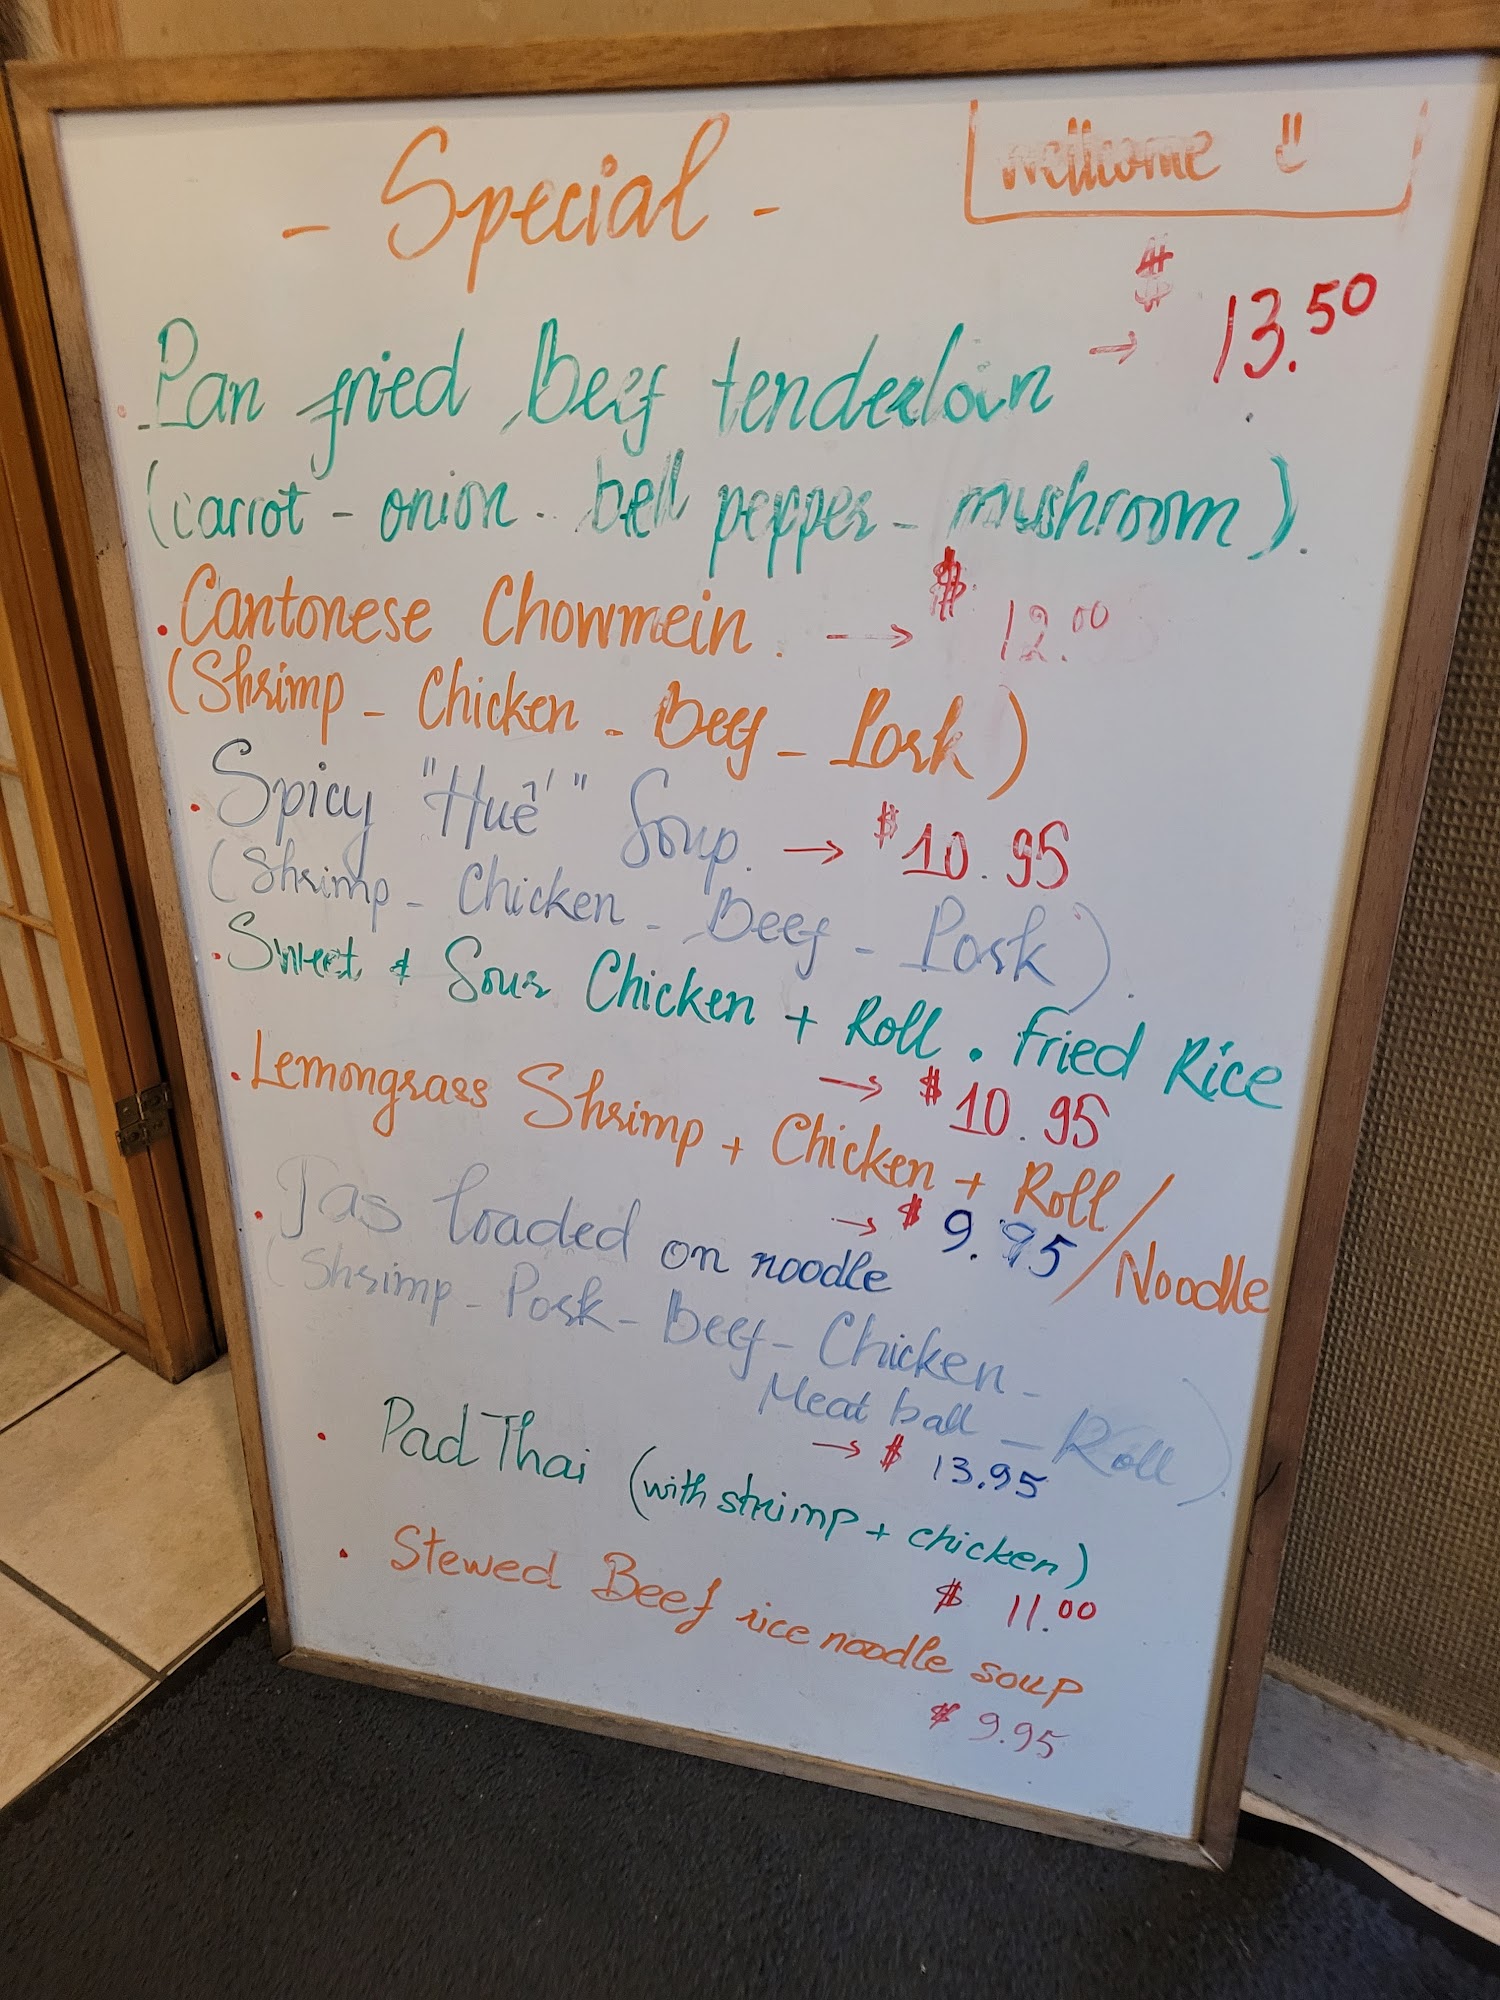 - Special -
wellcome
$ 13.50
. Pan fried Beef tenderloin →
(carrot - onion - bell pepper - mushroom).
. Cantonese Chowmein. → $ 12.00
(Shrimp - Chicken - Beef - Pork)
. Spicy "Huế" Soup. → $10.95
(Shrimp - Chicken - Beef - Pork).
. Sweet & Sour Chicken + Roll . Fried Rice
→ $10.95
. Lemongrass Shrimp + Chicken + Roll / Noodle
→ $ 9.95
. Jas loaded on noodle
(Shrimp - Pork - Beef - Chicken -
Meat ball - Roll).
→ $ 13.95
. Pad Thai (with strimp + chicken)
$ 11.00
. Stewed Beef rice noodle soup
$ 9.95